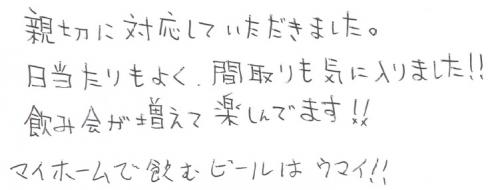 親切に対応していただきました。
日当たりもよく、間取りも気に入りました!!
飲み会が増えて楽しんでます!!
マイホームで飲むビールはウマイ!!